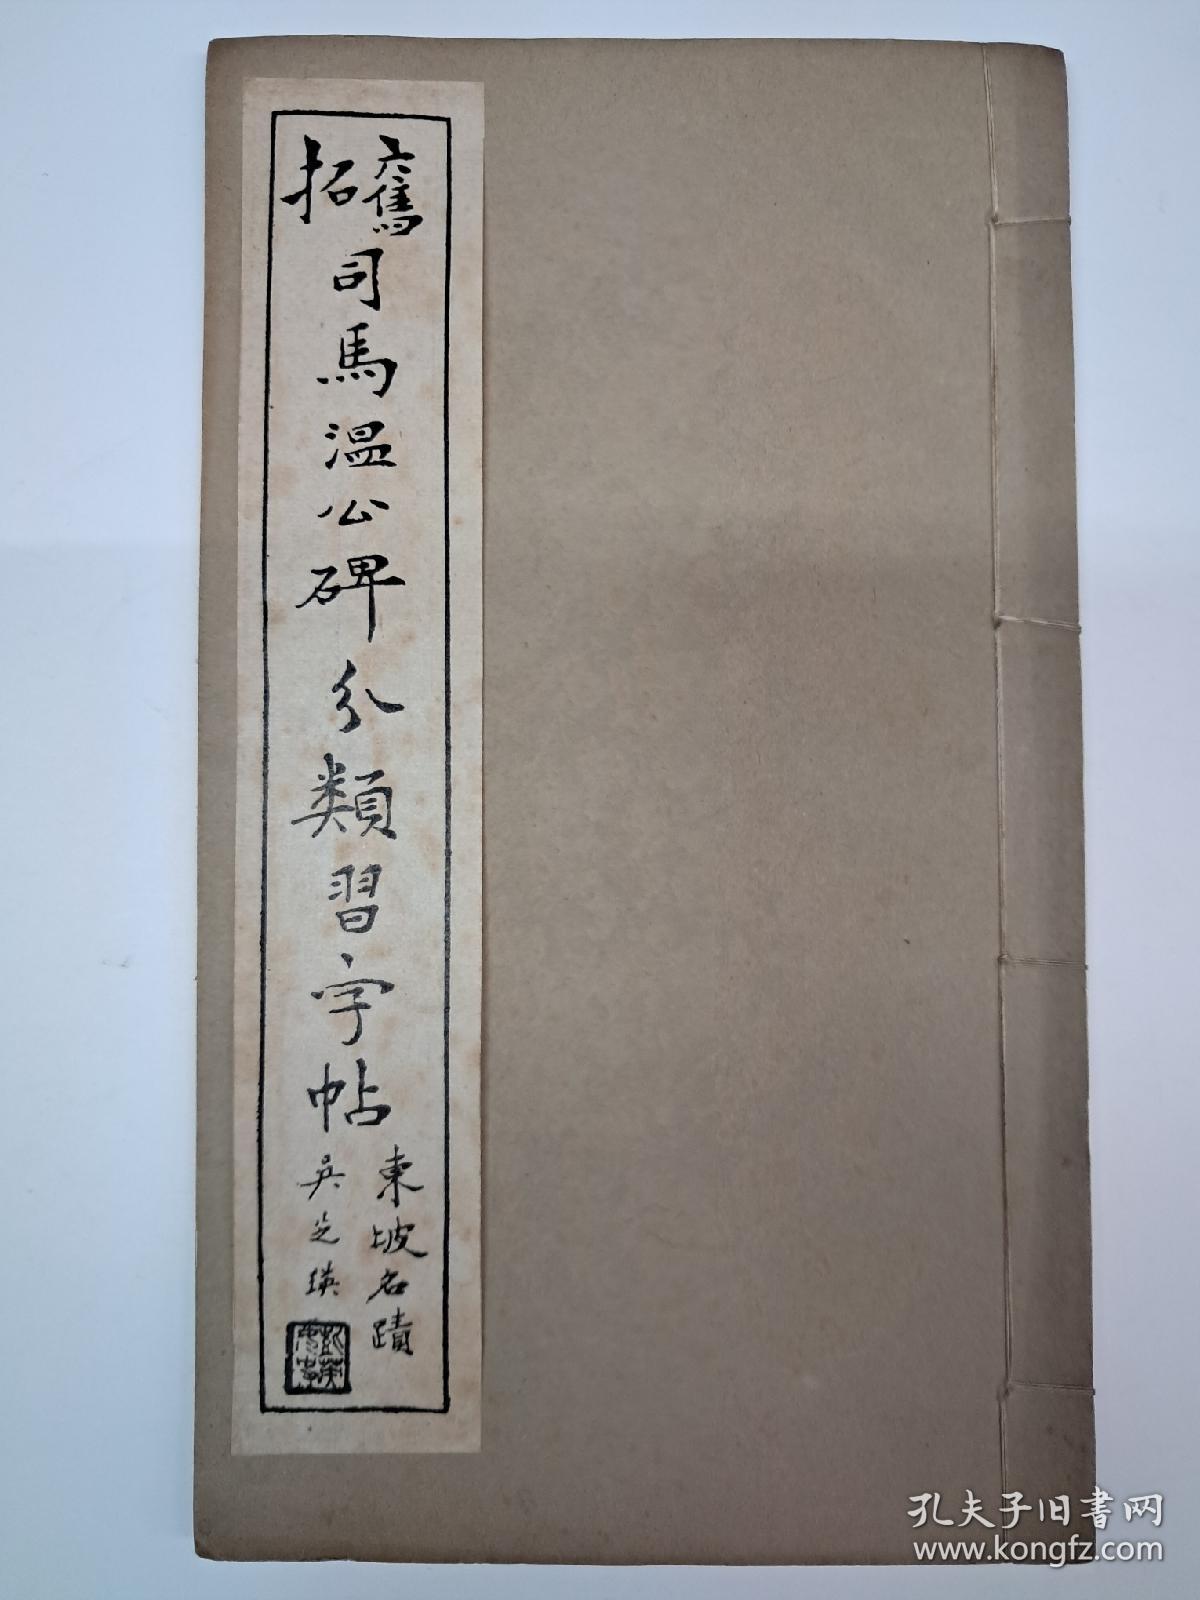 舊拓
司馬溫公碑分類習字帖
東坡名蹟
吳芝瑛
孔夫子旧書网
www.kongfz.com